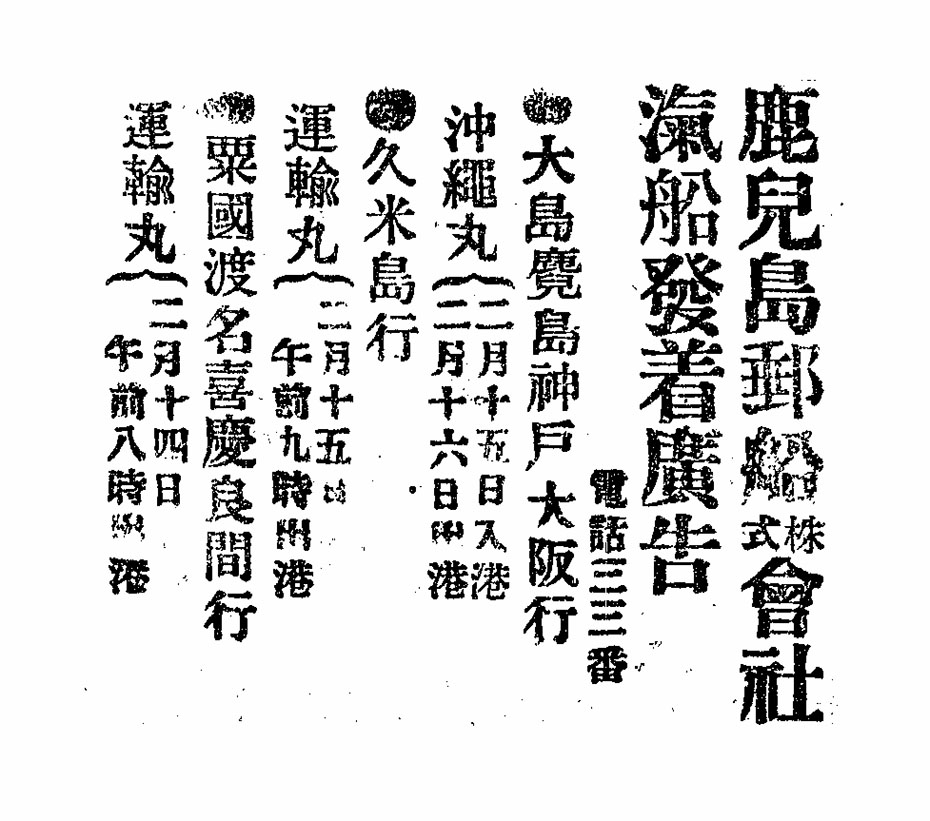 鹿兒島郵船株式會社
滊船發着廣告
電話三三番
●大島麑島神戶大阪行
沖繩丸
二月十五日入港
二月十六日出港
●久米島行
運輸丸
二月十五日
午前九時出港
●粟國渡名喜慶良間行
運輸丸
二月十四日
午前八時出港